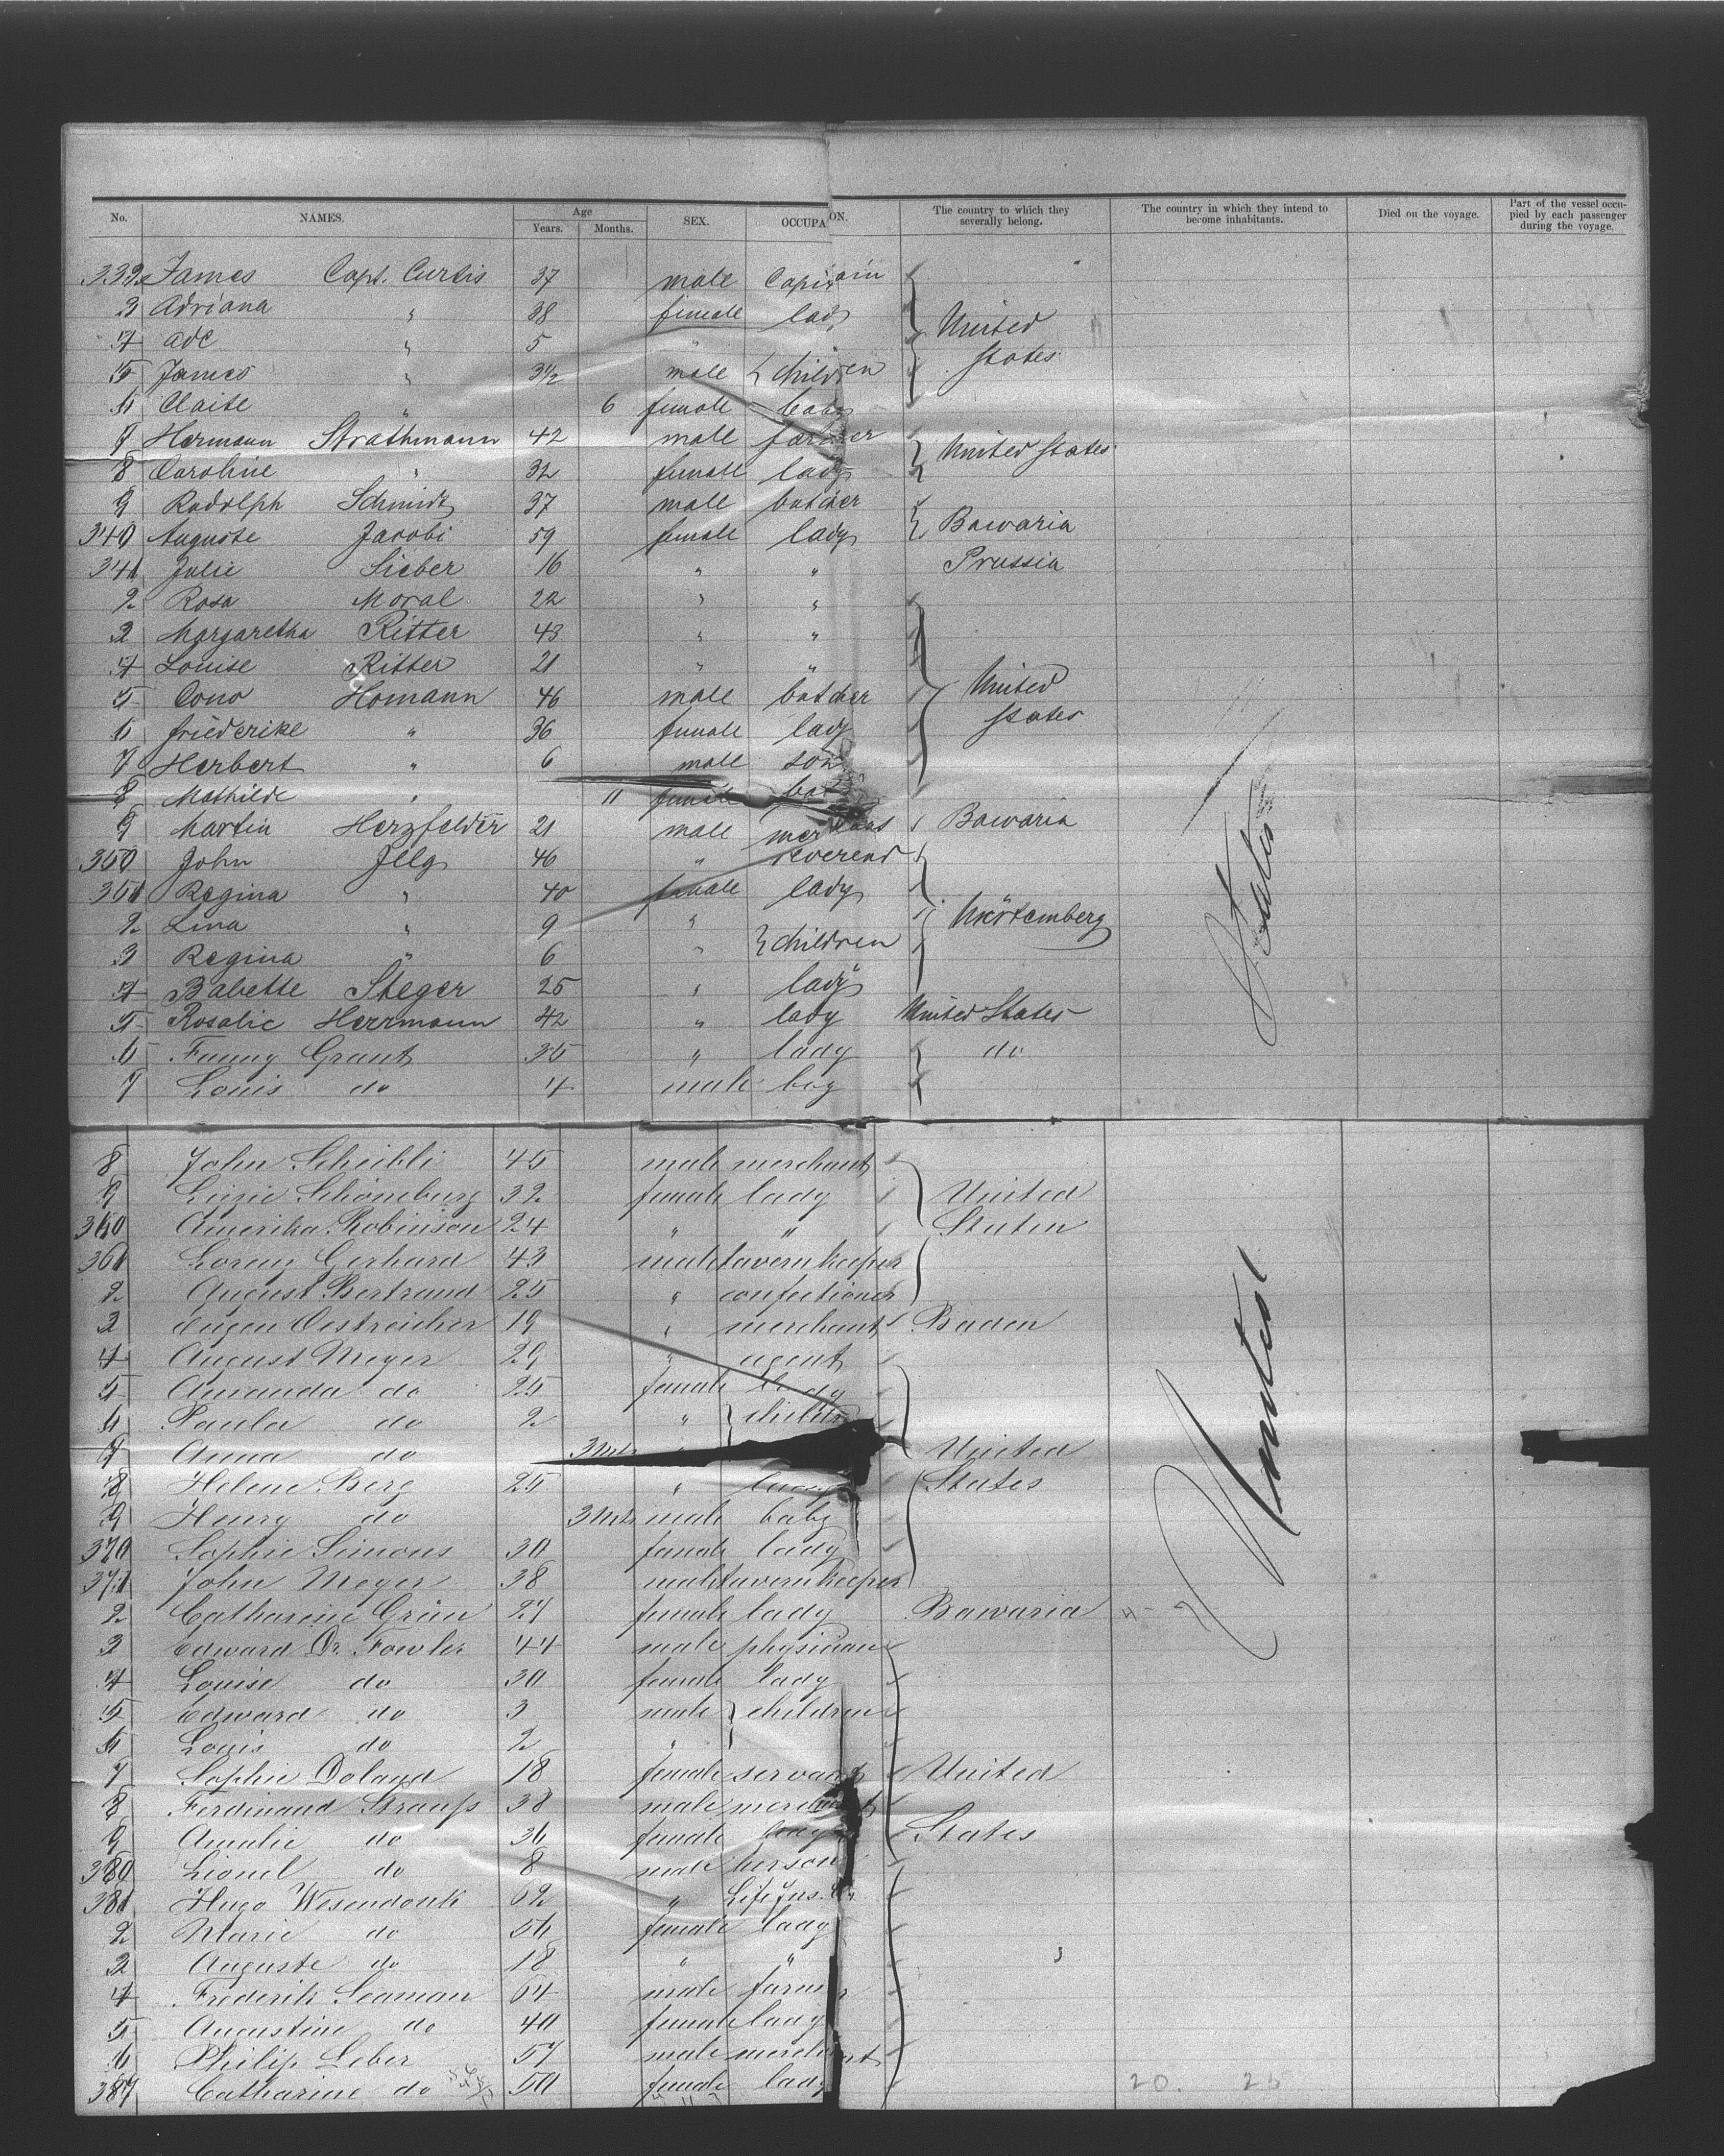 No. NAMES. Age Years. Months. SEX. OCCUPATION. The country to which they severally belong. The country in which they intend to become inhabitants. Died on the voyage. Part of the vessel occupied by each passenger during the voyage.
332 James Capt. Curtis 37 male Captain
3 Adriana " 38 female lady United
4 Ade " 5 "
5 James " 3½ male } children States
6 " 6 female baby
7 Hermann Strathmann 42 male farmer United States
8 Caroline " 32 female lady
9 Rudolph Schmidt 37 male butcher
340 Auguste Jacobi 59 female lady Bawaria
341 Julie Sieber 16 " " Prussia
2 Rosa Moral 22 " "
3 Margaretha Ritter 43 " "
4 Louise Ritter 21 " "
5 Cono Homann 46 male butcher United
6 friederike " 36 female lady States
7 Herbert " 6 male son
8 Mathilde " 11 female baby
9 Martin Herzfelder 21 male Bawaria
350 John Jllg 46 " reverend
351 Regina " 40 female lady
2 Lina " 9 " Würtemberg
3 Regina " 6 " } children
4 Babette Steger 25 " lady
5 Rosalie Herrmann 42 " lady United States
6 Fanny Grant 35 " lady do
7 Louis do 4 male boy
8 John Scheibli 45 male merchant
9 Lizzie Schöneburg 32 female lady United
360 Amerika Robinson 24 " " Staten
361 Lorenz Gerhard 43 male tavernkeeper
2 August Bertrand 25 " confectioner
3 Eugen Oestreicher 19 " merchant Baden
4 August Meyer 29 " agent
5 Amanda do 25 female lady
6 Paula do 2 " } children
7 Anna do 3 Mts United
8 Helene Berg 25 " lady States
9 Henry do 3 Mts male baby
370 Sophie Simons 30 female lady
371 John Meyer 38 male tavernkeeper
2 Catharine Grün 27 female lady Bawaria
3 Edward Dr. Fowler 44 male physician
4 Louise do 30 female lady
5 Edward do 3 male } children
6 Louis do 2 "
7 Sophie Doland 18 female servant United
8 Ferdinand Strauss 38 male merchant
9 Amalie do 36 female lady States
380 Lionel do 8 male her son
381 Hugo Wesendonk 62 " Life Ins.
2 Marie do 56 female lady
3 Auguste do 18 " "
4 Frederik Seaman 64 male farmer
5 Augustine do 40 female lady
6 Philip Leber 57 male merchant
387 Catharine do 50 female lady 20. 25
United States